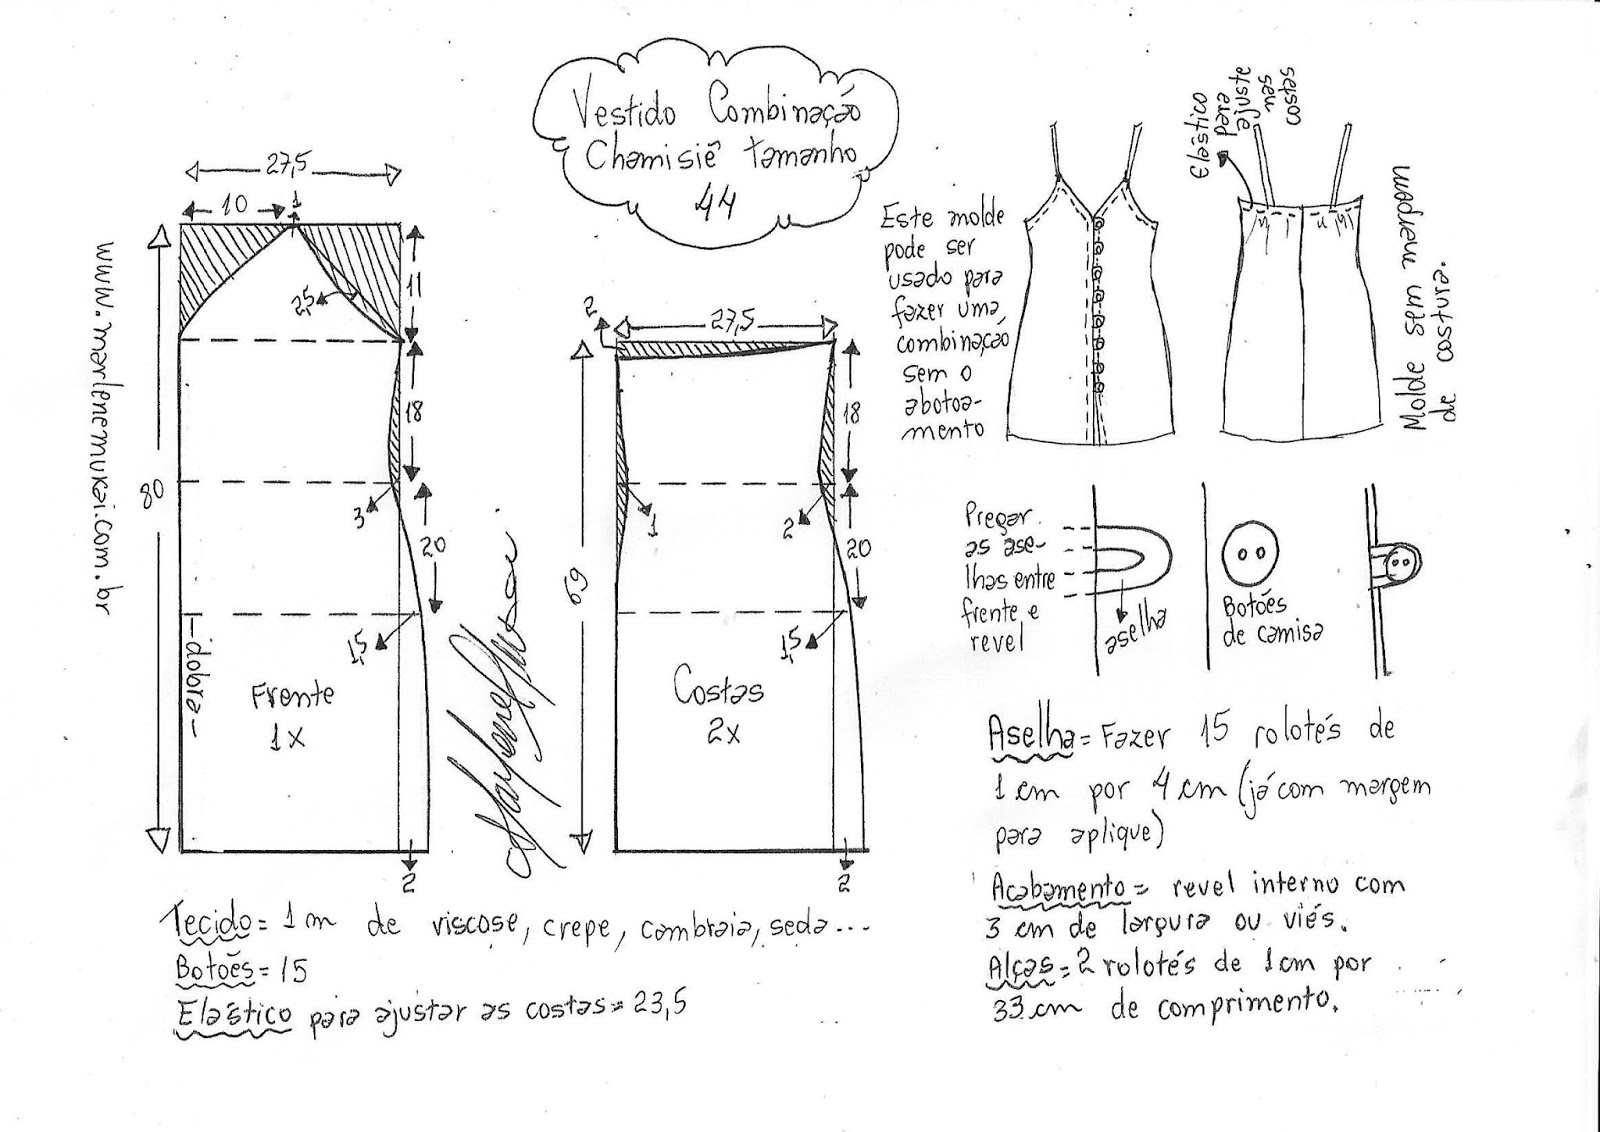 Vestido Combinação
Chamisiê tamanho
44
www.marlenemukai.com.br
27,5
10
1
11
2,5
18
80
3
20
1,5
dobra
Frente
1x
2
2
27,5
18
69
1
2
20
1,5
Costas
2x
2
Este molde
pode ser
usado para
fazer uma
combinação
sem o
abotoa-
mento
Elástico
para
ajuste
nas
costas
Molde sem margem
de costura.
Pregar
as ase-
lhas entre
frente e
revel
aselha
Botões
de camisa
Aselha = Fazer 15 rolotés de
1 cm por 4 cm (já com margem
para aplique)
Acabamento = revel interno com
3 cm de largura ou viés.
Alças = 2 rolotés de 1 cm por
33 cm de comprimento.
Tecido = 1 m de viscose, crepe, cambraia, seda...
Botões = 15
Elástico para ajustar as costas = 23,5